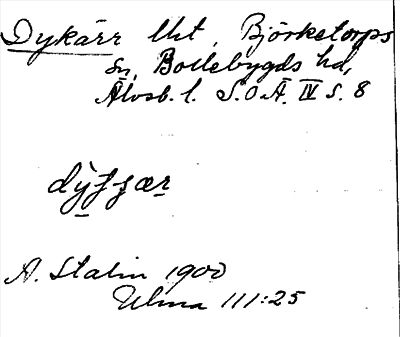 Dykärr lht, Björketorps
sn, Bollebygds hd,
Älvsb. l. S.O.Ä. IV s. 8
A. Stalin 1900
Ulma 111:25